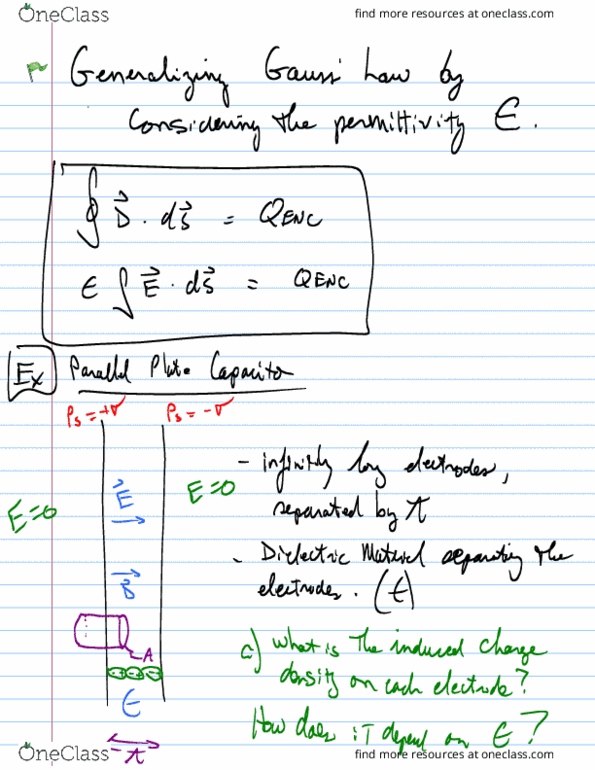 OneClass
find more resources at oneclass.com
Generalizing Gauss' Law by
Considering the permittivity ϵ.
∮ D⃗ · ds⃗ = QENC
ϵ ∫ E⃗ · ds⃗ = QENC
Ex Parallel Plate Capacitor
ρs=+σ ρs=-σ
- infinitely long electrodes,
separated by t
E=0 E⃗ E=0
- Dielectric Material separating the
electrodes. (ϵ)
D⃗
A
a) What is the induced charge
density on each electrode?
ϵ
How does it depend on ϵ?
t
OneClass
find more resources at oneclass.com